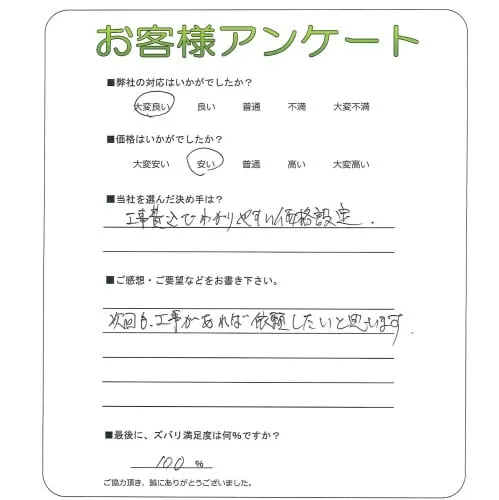 お客様アンケート
■弊社の対応はいかがでしたか?
大変良い 良い 普通 不満 大変不満
■価格はいかがでしたか?
大変安い 安い 普通 高い 大変高い
■当社を選んだ決め手は?
工事費込でわかりやすい価格設定.
■ご感想・ご要望などをお書き下さい。
次回も、工事があれば依頼したいと思います.
■最後に、ズバリ満足度は何%ですか?
100 %
ご協力頂き、誠にありがとうございました。